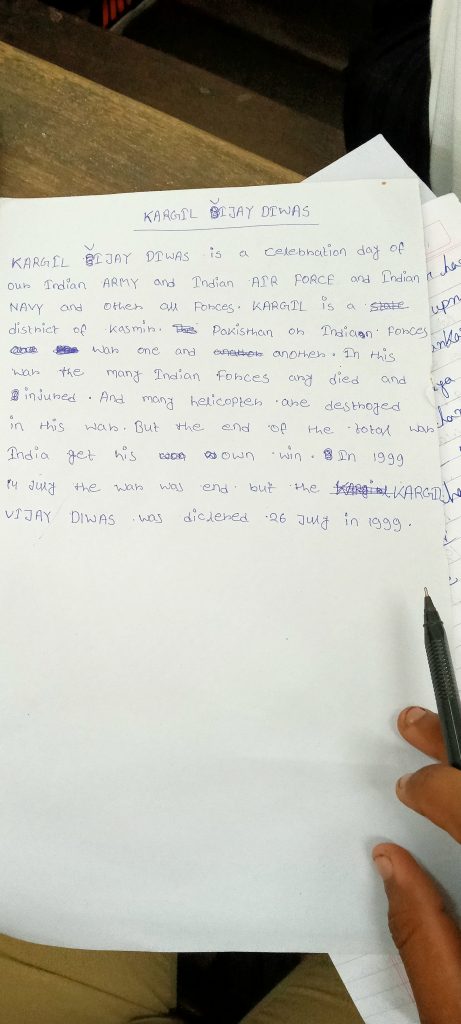 KARGIL VIJAY DIWAS
KARGIL VIJAY DIWAS is a celebration day of
our Indian ARMY and Indian AIR FORCE and Indian
NAVY and other all Forces. KARGIL is a
district of Kasmir. Pakisthan or Indian forces
war one and another. In this
war the many Indian forces any died and
injured. And many helicopter are destroyed
in this war. But the end of the total war
India get his own win. In 1999
14 July the war was end but the KARGIL
VIJAY DIWAS was diclered 26 July in 1999.